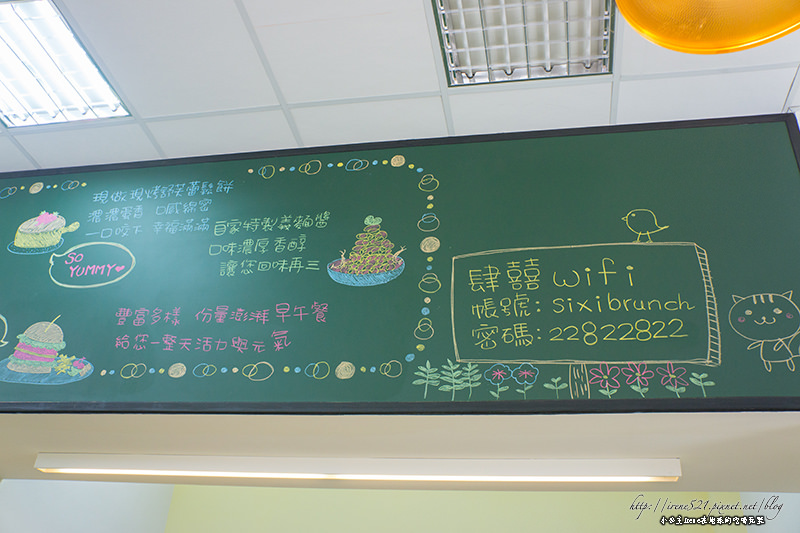 現做現烤舒芙蕾鬆餅
濃濃蛋香 口感綿密
一口咬下 幸福滿滿
SO
YUMMY
自家特製義麵醬
口味濃厚香醇
讓您回味再三
豐富多樣 份量澎湃早午餐
給您一整天活力與元氣
肆囍 wifi
帳號: sixibrunch
密碼: 22822822
http://irene521.pixnet.net/blog